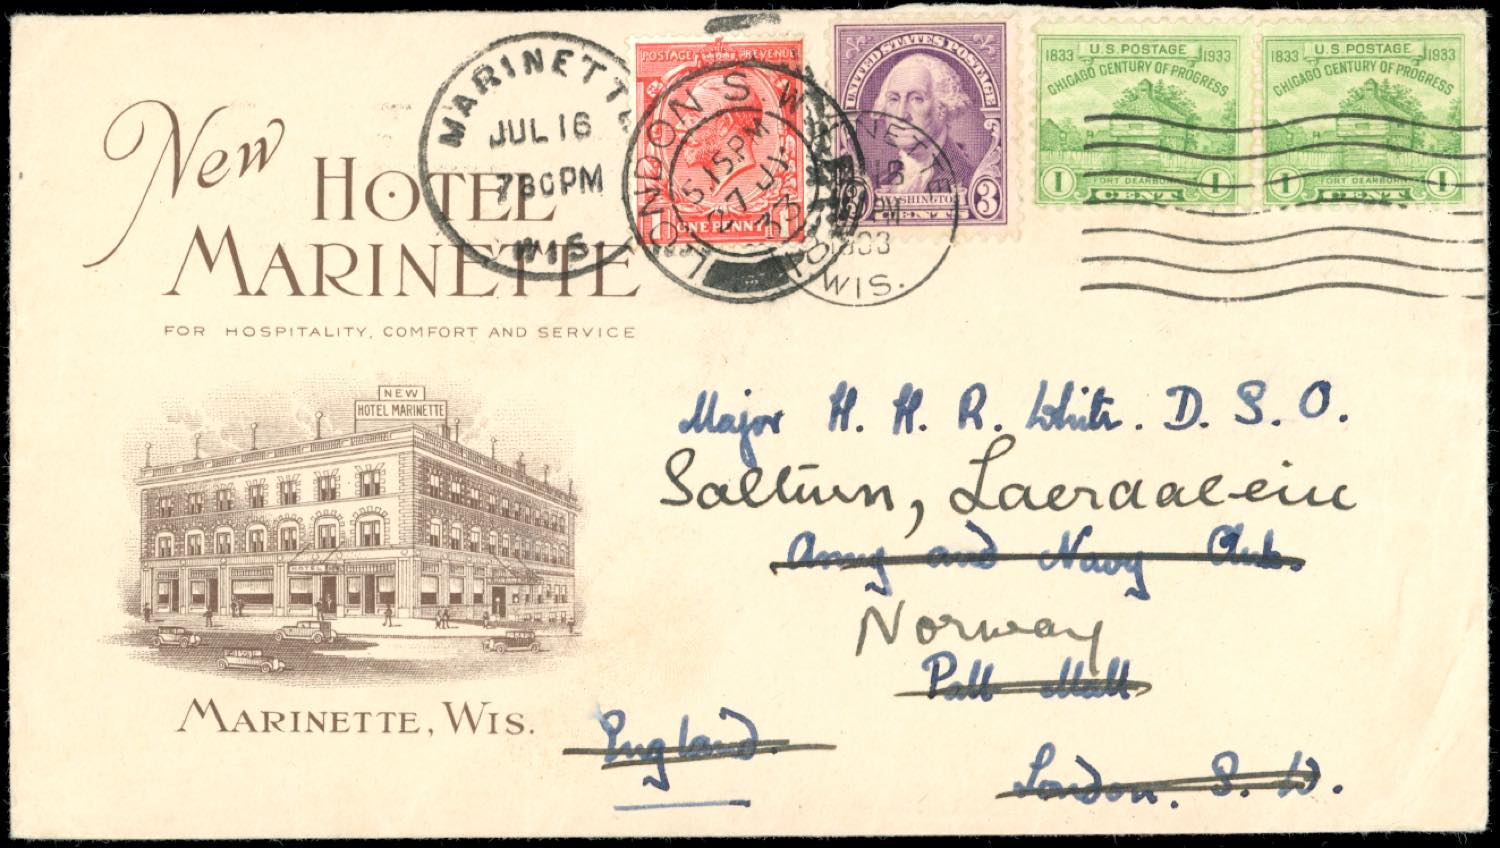 New
HOTEL
MARINETTE
FOR HOSPITALITY, COMFORT AND SERVICE
NEW
HOTEL MARINETTE
HOTEL
MARINETTE, WIS.
MARINETTE
JUL 16
730PM
WIS.
POSTAGE REVENUE
ONE PENNY
LONDON S.W.
5.15 PM
27 JY
33
UNITED STATES POSTAGE
WASHINGTON
3 CENTS 3
1933
WIS.
U.S. POSTAGE
1833 1933
CHICAGO CENTURY OF PROGRESS
FORT DEARBORN
1 CENT 1
U.S. POSTAGE
1833 1933
CHICAGO CENTURY OF PROGRESS
FORT DEARBORN
1 CENT 1
Major H. H. R. White. D. S. O.
Saltun, Laerdalseiu
Army and Navy Club.
Norway
Pall Mall
England.
London. S. W.